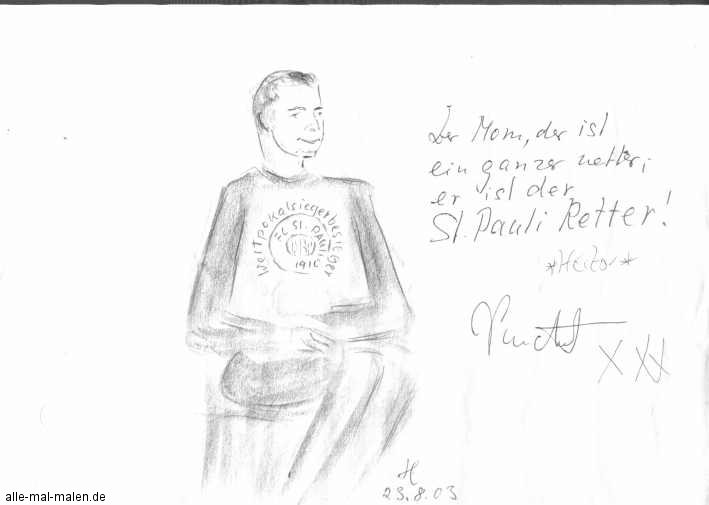 Weltpokalsiegerbesieger
FC St. PAULI
1910
Der Mom, der ist
ein ganzer netter,
er ist der
St. Pauli Retter!
*Hector*
XXX
H
23.8.03
alle-mal-malen.de